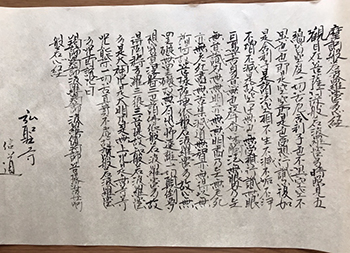 摩訶般若波羅蜜多心経
観自在菩薩行深般若波羅蜜多時照見五
蘊皆空度一切苦厄舎利子色不異空空不
異色色即是空空即是色受想行識亦復如
是舎利子是諸法空相不生不滅不垢不浄
不増不減是故空中無色無受想行識無眼
耳鼻舌身意無色声香味触法無眼界乃至
無意識界無無明亦無無明尽乃至無老死
亦無老死尽無苦集滅道無智亦無得以無
所得故菩提薩埵依般若波羅蜜多故心無
罣礙無罣礙故無有恐怖遠離一切顛倒夢
想究竟涅槃三世諸仏依般若波羅蜜多故
得阿耨多羅三藐三菩提故知般若波羅蜜
多是大神呪是大明呪是無上呪是無等等
呪能除一切苦真実不虚故説般若波羅蜜
多呪即説呪曰
羯諦羯諦波羅羯諦波羅僧羯諦菩提薩婆訶
般若心経
弘聖寺
信道